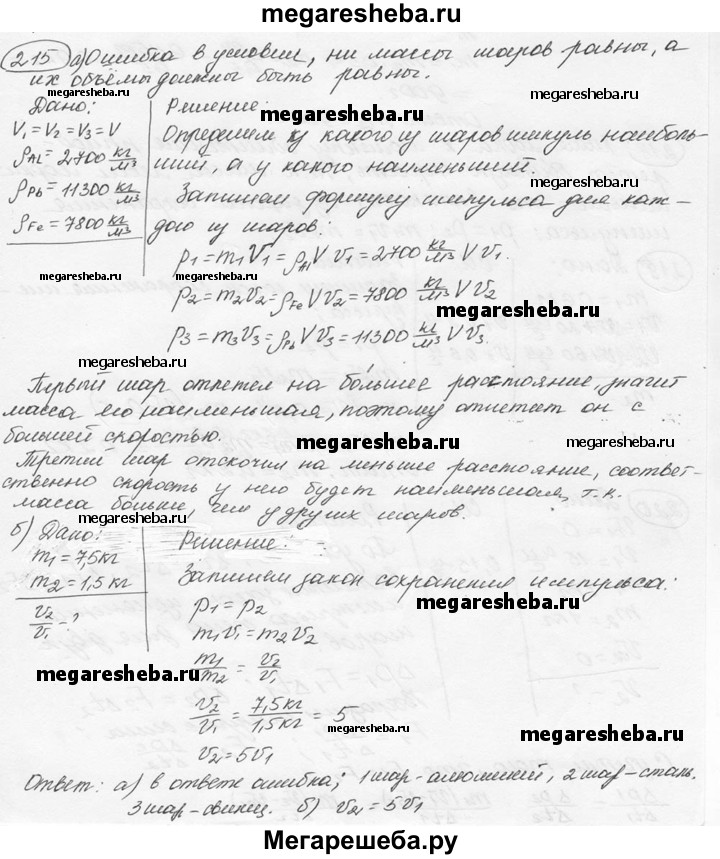 megaresheba.ru
215 а) Ошибка в условии, ни массы шаров равны, а
их объёмы должны быть равны.
Дано:
V₁ = V₂ = V₃ = V
ρAl = 2700 кг/м³
ρPb = 11300 кг/м³
ρFe = 7800 кг/м³
Решение:
megaresheba.ru
Определим у какого из шаров импульс наиболь-
ший, а у какого наименьший.
megaresheba.ru
Запишем формулу импульса для каж-
дого из шаров:
p₁ = m₁V₁ = ρAl V v₁ = 2700 кг/м³ V v₁.
megaresheba.ru
megaresheba.ru
p₂ = m₂v₂ = ρFe V v₂ = 7800 кг/м³ V v₂
megaresheba.ru
p₃ = m₃v₃ = ρPb V v₃ = 11300 кг/м³ V v₃.
megaresheba.ru
Первый шар отлетел на большее расстояние, значит
масса его наименьшая, поэтому отлетает он с
большей скоростью.
megaresheba.ru
megaresheba.ru
Третий шар отскочил на меньшее расстояние, соответ-
ственно скорость у него будет наименьшая, т.к.
масса больше, чем у других шаров.
megaresheba.ru
megaresheba.ru
б) Дано:
m₁ = 7,5 кг
m₂ = 1,5 кг
v₂/v₁ - ?
Решение:
Запишем закон сохранения импульса:
p₁ = p₂
megaresheba.ru
m₁v₁ = m₂v₂
m₁/m₂ = v₂/v₁
megaresheba.ru
v₂/v₁ = 7,5 кг/1,5 кг = 5
megaresheba.ru
megaresheba.ru
v₂ = 5v₁
Ответ: а) в ответе ошибка; 1 шар - алюминий, 2 шар - сталь.
3 шар - свинец. б) v₂ = 5v₁
megaresheba.ru
Мегарешеба.ру